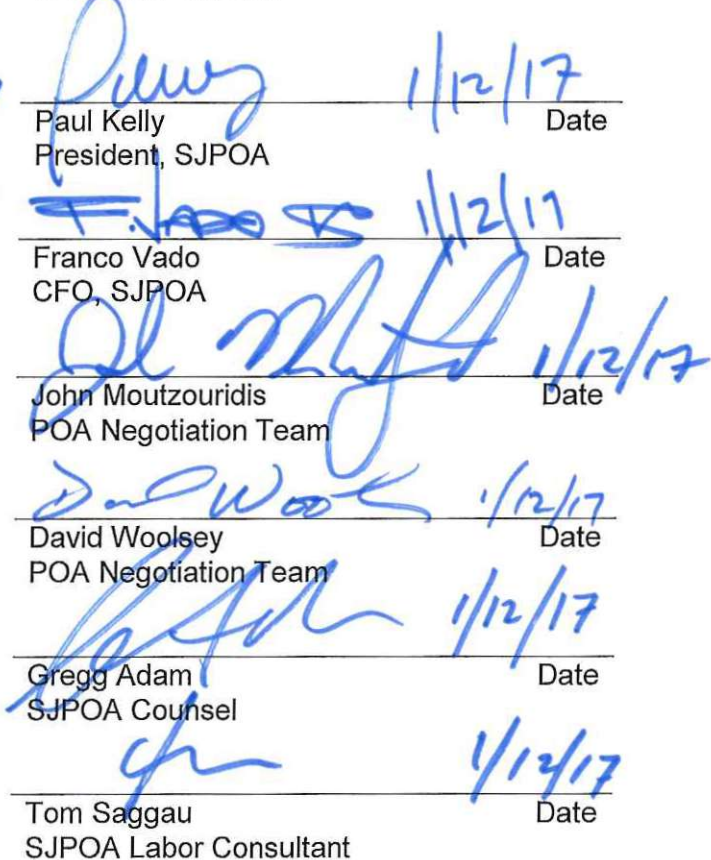 1/12/17
Paul Kelly Date
President, SJPOA
F. VADO 1/12/17
Franco Vado Date
CFO, SJPOA
1/12/17
John Moutzouridis Date
POA Negotiation Team
1/12/17
David Woolsey Date
POA Negotiation Team
1/12/17
Gregg Adam Date
SJPOA Counsel
1/12/17
Tom Saggau Date
SJPOA Labor Consultant